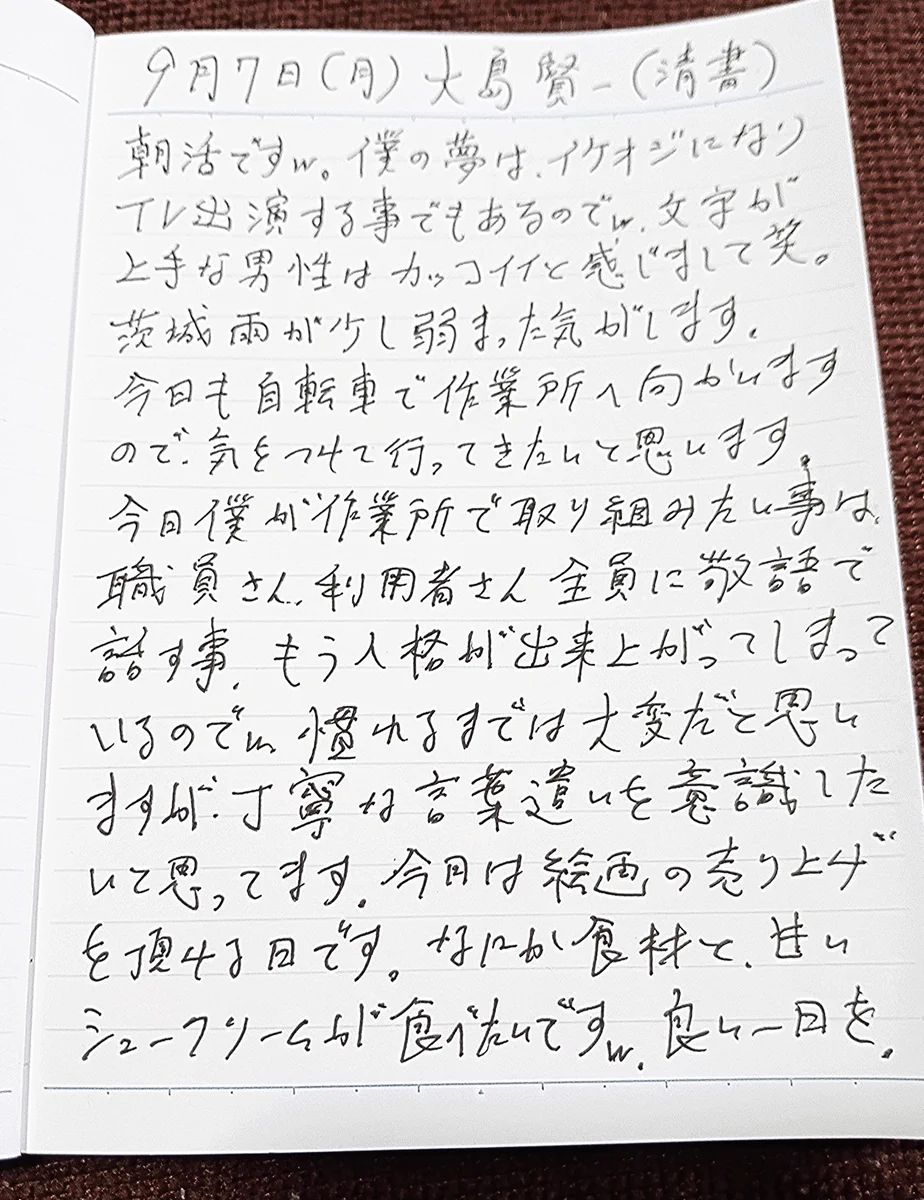 9月7日(月)大島賢一(清書)
朝活ですw。僕の夢は、イケオジになり
TV出演する事でもあるのでw、文字が
上手な男性はカッコイイと感じまして笑。
茨城雨が少し弱まった気がします。
今日も自転車で作業所へ向かいます
ので、気をつけて行ってきたいと思います。
今日僕が作業所で取り組みたい事は、
職員さん、利用者さん全員に敬語で
話す事、もう人格が出来上がってしまって
いるのでw、慣れるまでは大変だと思い
ますが、丁寧な言葉遣いを意識した
いと思ってます。今日は絵画の売り上げ
を頂ける日です。なにか食材と、甘い
シュークリームが食べたいですw。良い一日を。